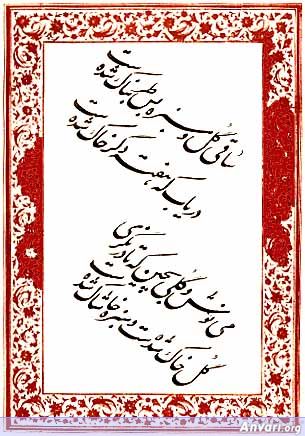 ساقی گل و سبزه بس طربناک شده‌ست
دریاب که هفته دگر خاک شده‌ست
می نوش و گلی بچین که تا درنگری
گل خاک شده‌ست و سبزه خاشاک شده‌ست
Anvari.org